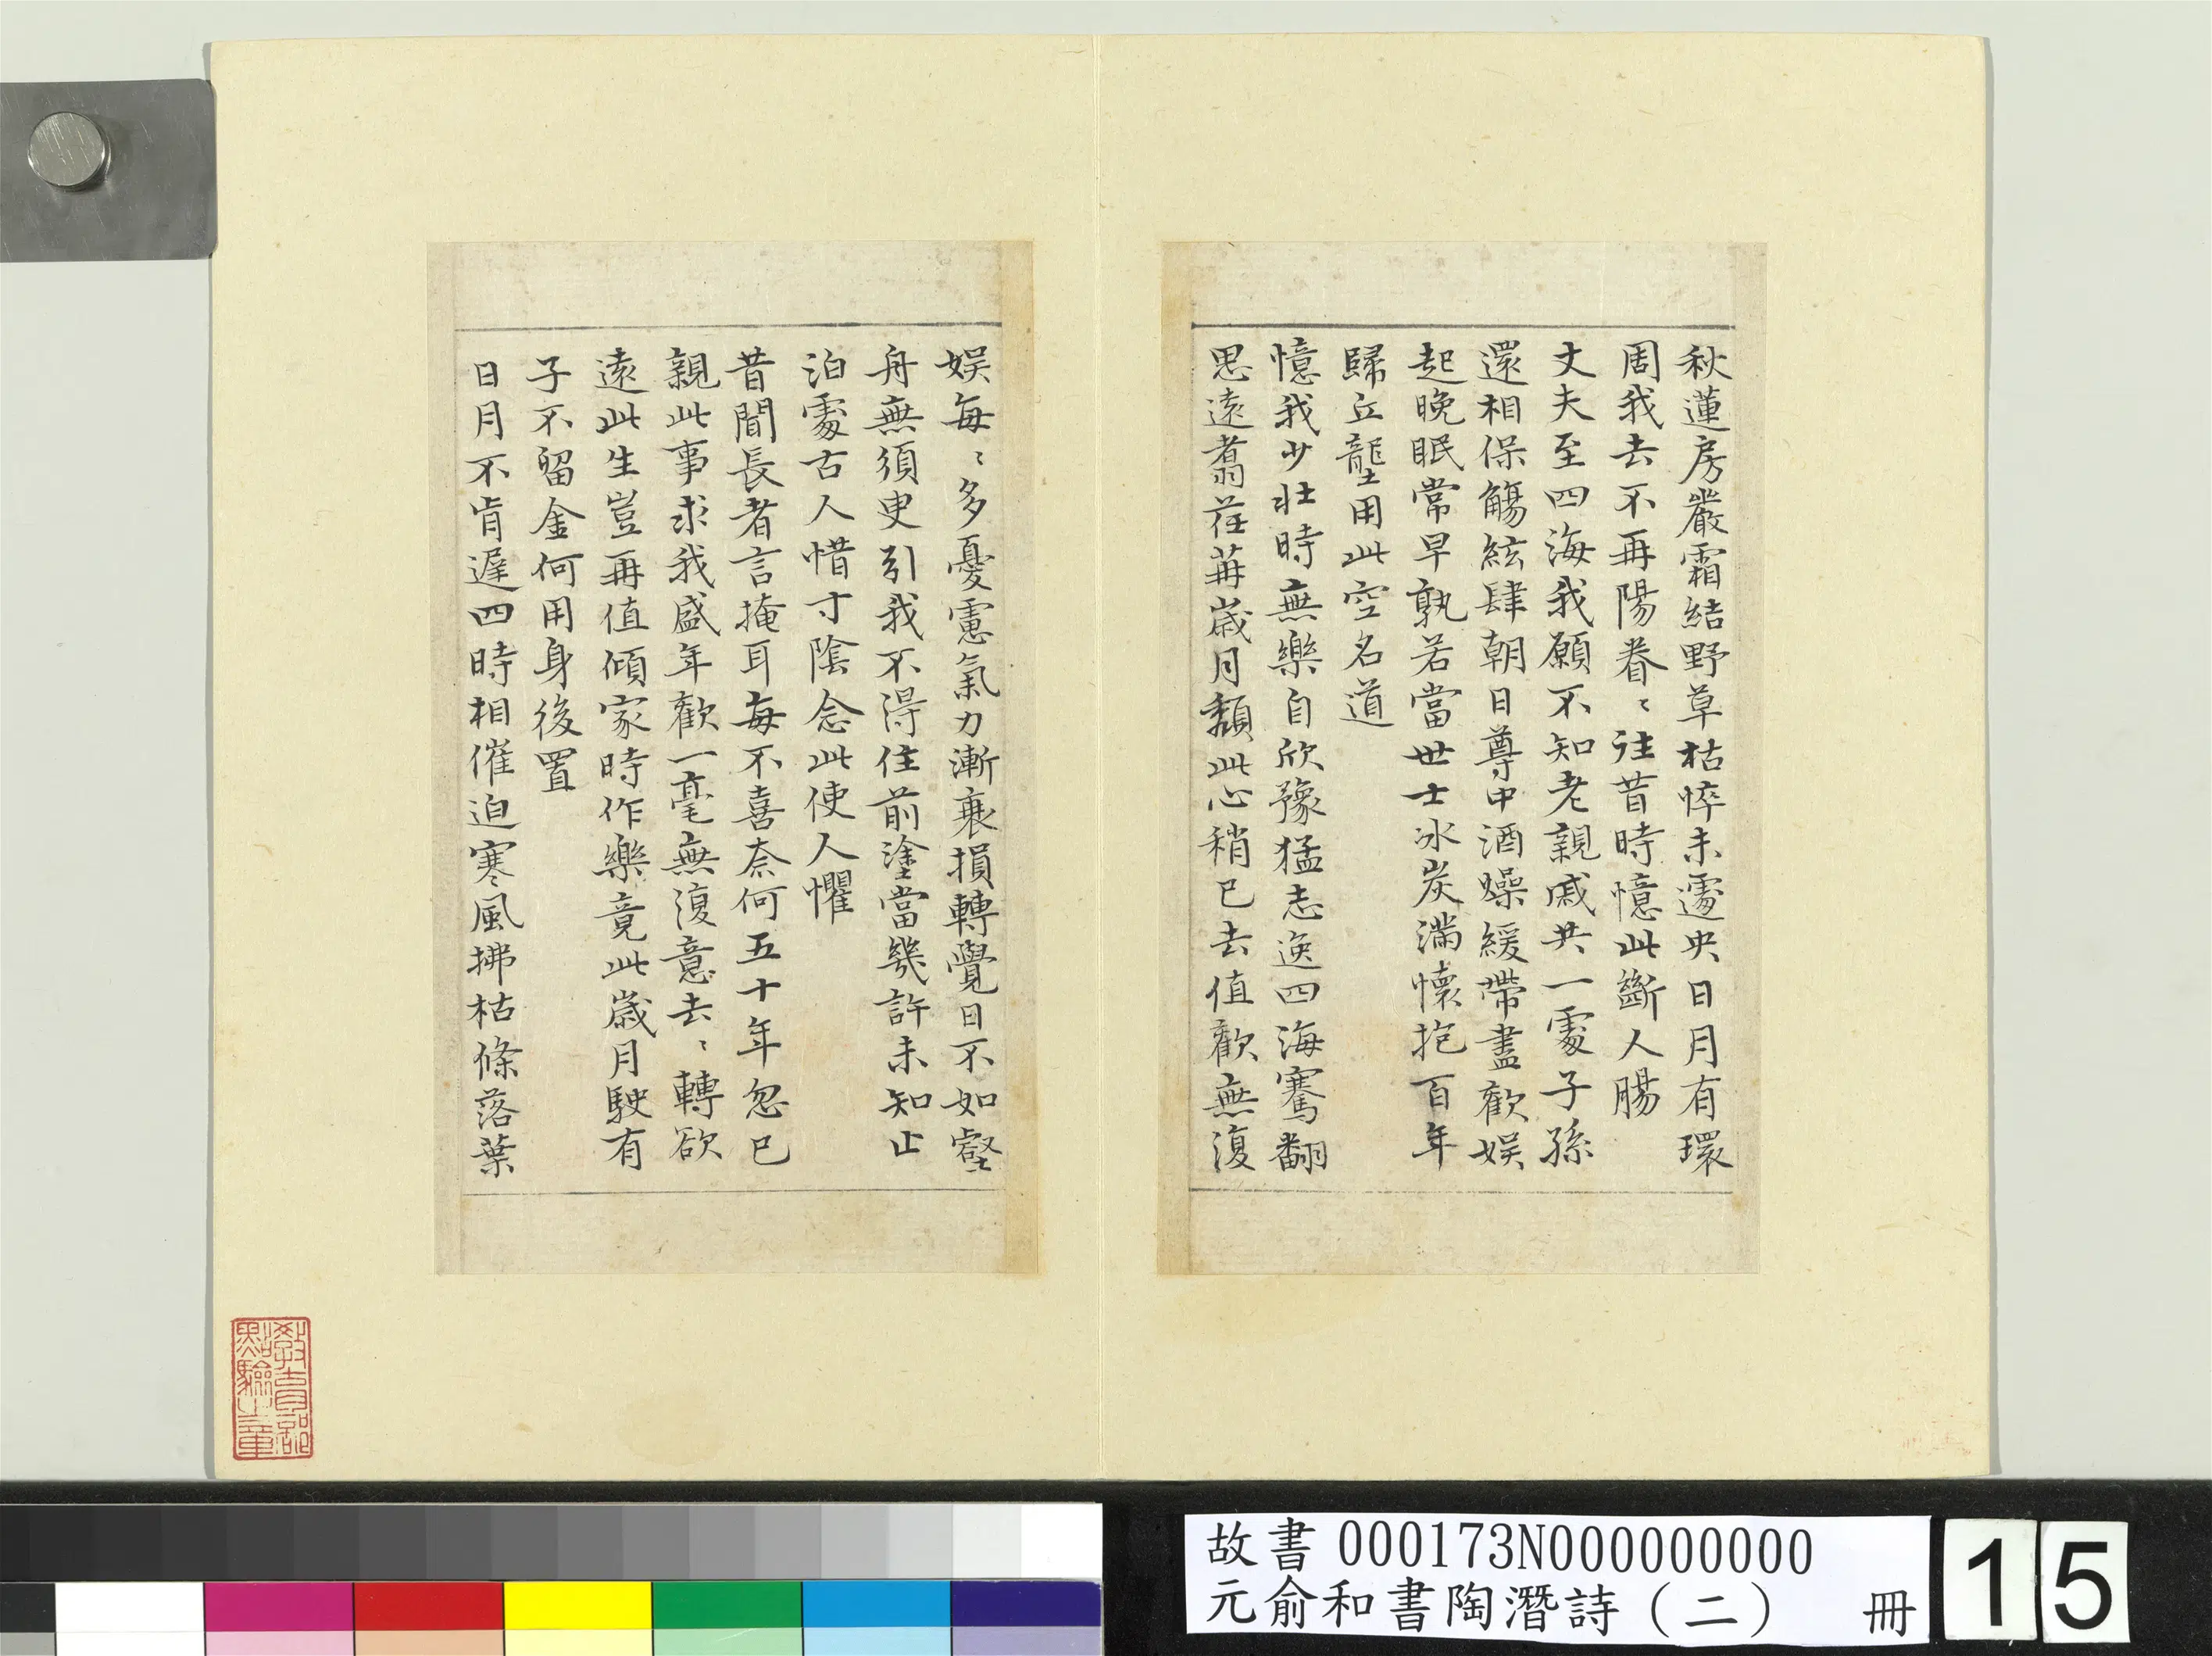 秋蓮房嚴霜結野草枯悴未遽央日月有環
周我去不再陽眷〻往昔時憶此斷人腸
丈夫至四海我願不知老親戚共一處子孫
還相保觴絃肆朝日尊中酒燥緩帶盡歡娛
起晚眠常早孰若當世士冰炭滿懷抱百年
歸丘壟用此空名道
憶我少壯時無樂自欣豫猛志逸四海騫翮
思遠翥荏苒歲月頹此心稍已去值歡無復
娛每〻多憂慮氣力漸衰損轉覺日不如壑
舟無須臾引我不得住前塗當幾許未知止
泊處古人惜寸陰念此使人懼
昔聞長者言掩耳每不喜奈何五十年忽已
親此事求我盛年歡一毫無復意去〻轉欲
遠此生豈再值傾家時作樂竟此歲月駛有
子不留金何用身後置
日月不肯遲四時相催迫寒風拂枯條落葉
教育部
點驗之章
故書 000173N000000000
元俞和書陶潛詩（二） 冊
15